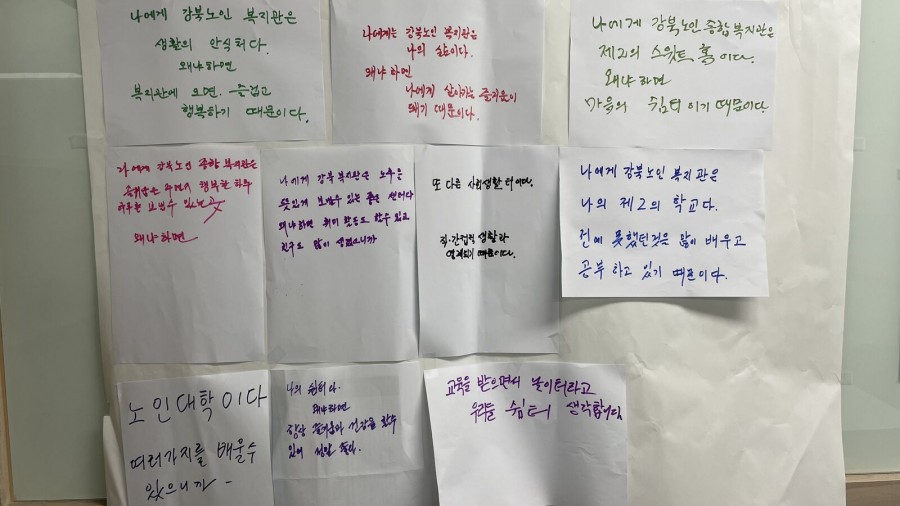 나에게 강북노인 복지관은
생활의 안식처다.
왜냐하면
복지관에 오면, 즐겁고
행복하기 때문이다.
나에게는 강북노인 복지관은
나의 삶이다.
왜냐 하면
나에게 살아가는 즐거움이
되기 때문이다.
나에게 강북노인종합복지관은
제2의 스위트 홈이다.
왜냐하면
마음의 쉼터이기 때문이다
나에게 강북노인 종합 복지관은
행복한 하루
하루를 보낼수 있는
왜냐하면
나에게 강북 복지관은 노후를
뜻있게 보낼수 있는 좋은
왜냐하면 취미 활동도 할수 있고
친구도 많이 생겼으니까
또 다른 사회생활 터이다.
직·간접적 생활과
연계되기 때문이다.
나에게 강북노인 복지관은
나의 제2의 학교다.
전에 못했던것은 많이 배우고
공부 하고 있기 때문이다.
노인대학이다
여러가지를 배울수
있으니까 -
나의 쉼터다.
왜냐하면
항상 즐거움과 건강을 할수
있어 정말 좋다.
교육을 받으면서 놀이터라고
우리들 쉼터 생각합니다.